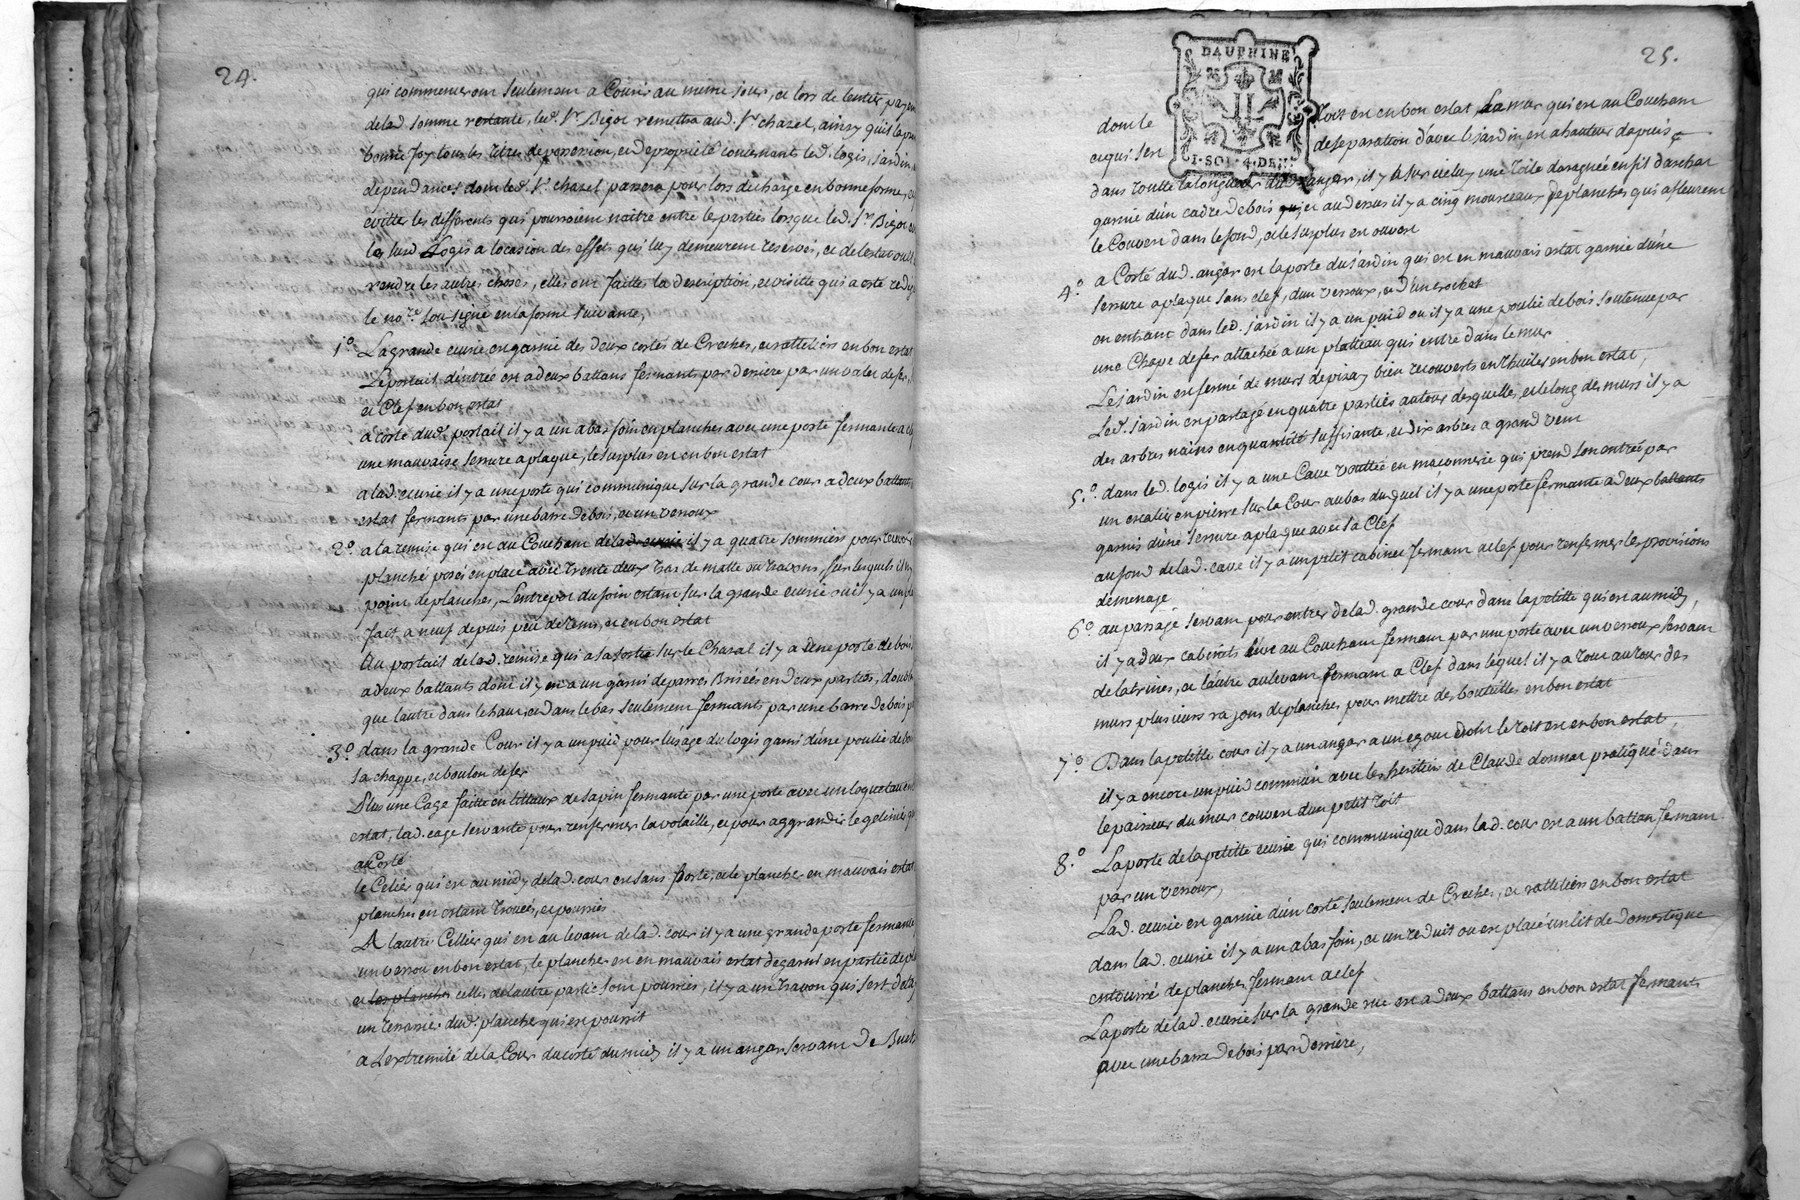 24.
qui commenceront seulement a Courir au meme jour, et lors de lentier
delad. somme restante, led. Sr. Bigot remettra aud. Sr. chazel, ainsy quil
bonne foy tous les titres de possession, et de propriété concernants led. logis, jardin
dependances dont led. Sr. chazel passera pour lors decharge en bonne forme,
eviter les differents qui pourroient naitre entre les parties lorsque led. Sr. Bigot
le susd. Logis a locasion des effets qui luy demeurent reservés, et de lestat ou
rendre les autres choses, elles ont faittes la description, et visitte qui a esté
le nore. sousigné en la forme suivante,
1o La grande ecurie en garnie des deux costés de Creches, et ratteliers en bon estat
Le portail d'entrée est a deux battans fermants par derriere par un valet de fer,
et Clef en bon estat
a costé dud. portail il y a un abas foin en planches avec une porte fermante a
une mauvaise serrure a plaque, le surplus est en bon estat
a lad. ecurie il y a une porte qui communique sur la grande cour a deux battants
estat fermants par une barre de bois, et un verroux
2o a la remise qui est au Couchant delad. ecurie il y a quatre sommiers pour recevoir
planché posés en place avec trente deux tras de malle ou travons, sur lesquels il ny
point de planches, Lentrepos du foin estant sur la grande ecurie ou il y a un
fait a neuf depuis peu de tems, et en bon estat
Au portail de lad. remise qui a sa sortie sur le Chazal il y a une porte de bois
a deux battants dont il y en a un garni de parres Brisées en deux parties, doublé
que lautre dans le haut, et dans le bas seulement fermants par une barre de bois
3o dans la grande Cour il y a un puid pour lusage du logis garni dune poulie de bois
sa chappe, et boulon de fer
Plus une Cage faitte en litteaux de sapin fermante par une porte avec un loquetau en
estat, lad. cage servante pour renfermer la volaille, et pour aggrandir le gelinié
a Costé
le Celier qui est au midy delad. cour est sans porte, et le plancher en mauvais estat
planches en estant trouées, et pourries
A lautre Cellier qui est au levant delad. cour il y a une grande porte fermante
un verrou en bon estat, le plancher est en mauvais estat degarni en partie de
et les planches celles de lautre partie sont pourries, il y a un travon qui sert de
un terrasier dud. plancher qui est pourrit
a Lextremité de la Cour du costé du midy il y a un angar servant de
25.
DAUPHINE
I·SOL·4·DEN
dont le toit est en bon estat, Le mur qui est au Couchant
et qui sert de separation d'avec le jardin, en a hauteur depuis
dans toutte la longueur dud. angar, il y a sur icelluy une toile daragnée en fil darchal
garnie dun cadre de bois qui et au dessus il y a cinq mourceaux de planches qui afleurent
le Couvert dans le fond, et le surplus en ouvert
4o a Costé dud. angar est la porte du jardin qui est en mauvais estat garnie d'une
serrure a plaque sans clef, dun verroux, et d'un crochet
en entrant dans led. jardin il y a un puid ou il y a une poulie de bois soutenue par
une Chape de fer attachée a un platteau qui entre dans le mur
Le jardin en fermé de murs de pizay bien recouverts en thuiles en bon estat,
Led. jardin en partagé en quatre parties autour desquelles, et le long des murs il y a
des arbres nains en quantité suffisante, et dix arbres a grand vent
5o. dans led. logis il y a une Cave vouttée en maconnerie qui prend son entrée par
un escalier en pierre sur la Cour au bas duquel il y a une porte fermante a deux battants
garnis d'une serrure a plaque avec sa Clef
au fond de lad. cave il y a un petit cabinet fermant a clef pour renfermer les provisions
de menage
6o au passage servant pour entrer de lad. grande cour dans la petitte qui est au midy,
il y a deux cabinets l'un au Couchant fermant par une porte avec un verroux servant
de latrines, et l'autre au levant fermant a Clef dans lequel il y a tout autour des
murs plusieurs rajons de planches pour mettre des bouteilles en bon estat
7o Dans la petitte cour il y a un angar a un egout dont le toit est en bon estat,
il y a encore un puid commun avec les heritiers de Claude donnat pratiqué dans
lepaisseur du mur couvert d'un petit toit
8o. La porte de la petitte ecurie qui communique dans lad. cour est a un battan fermant
par un verroux,
Lad. ecurie en garnie d'un costé seulement de Creches, et ratteliers en bon estat
dans lad. ecurie il y a un abas foin, et un reduit ou est placé un lit de domestique
entourré de planches fermant a clef
La porte de lad. ecurie sur la grande rue est a deux battans en bon estat fermants
avec une barre de bois par derriere,